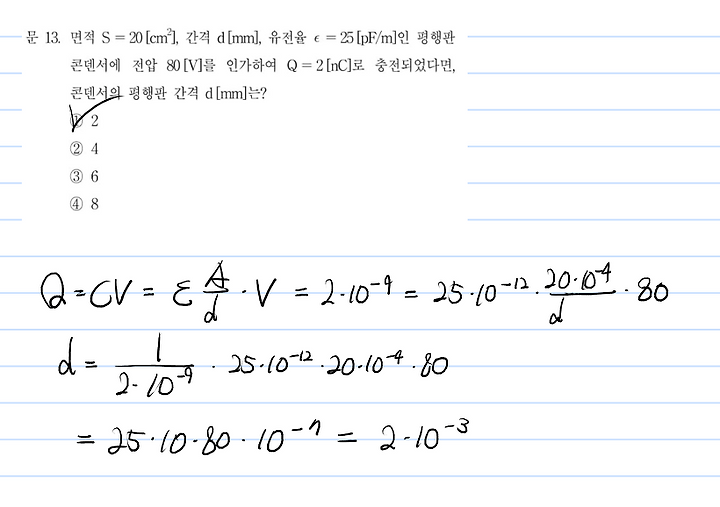 문 13. 면적 S = 20 [cm²], 간격 d [mm], 유전율 ϵ = 25 [pF/m]인 평행판
콘덴서에 전압 80 [V]를 인가하여 Q = 2 [nC]로 충전되었다면,
콘덴서의 평행판 간격 d [mm]는?
① 2
② 4
③ 6
④ 8
Q = CV = ε A/d · V = 2·10⁻⁹ = 25·10⁻¹² · 20·10⁻⁴/d · 80
d = 1/2·10⁻⁹ · 25·10⁻¹² · 20·10⁻⁴ · 80
= 25·10·80·10⁻⁷ = 2·10⁻³